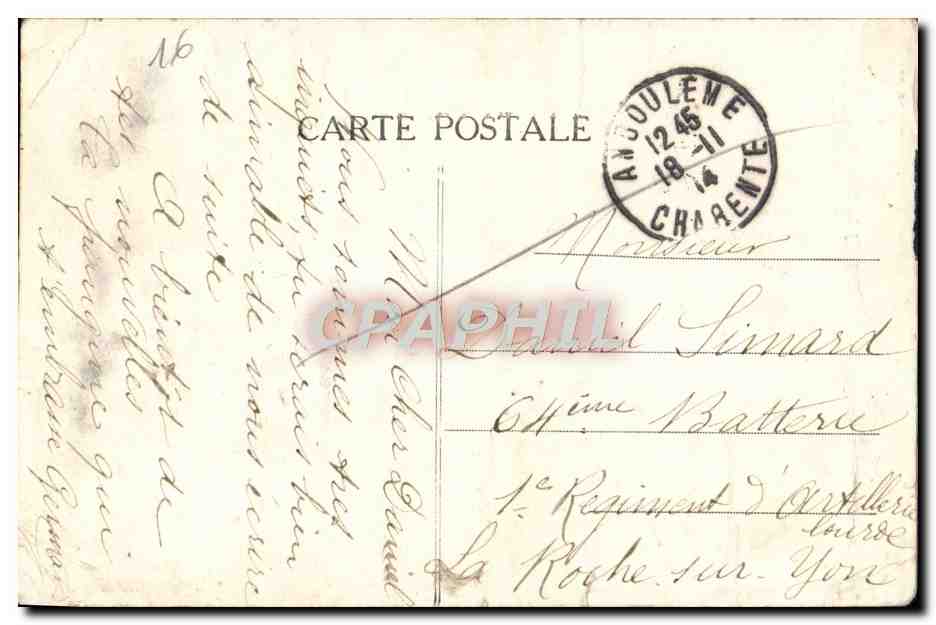 16
CARTE POSTALE
ANGOULEME
12 45
18 -11
14
CHARENTE
Mon Cher Daniel
Nous sommes très
inquiets, tu serais bien
aimable de nous écrire
de suite
A bientôt de
tes nouvelles
la frangine qui
t'embrasse Germaine
Monsieur
Daniel Simard
64ème Batterie
1e Regiment d'Artillerie
lourde
La Roche-sur-Yon
CPAPHIL